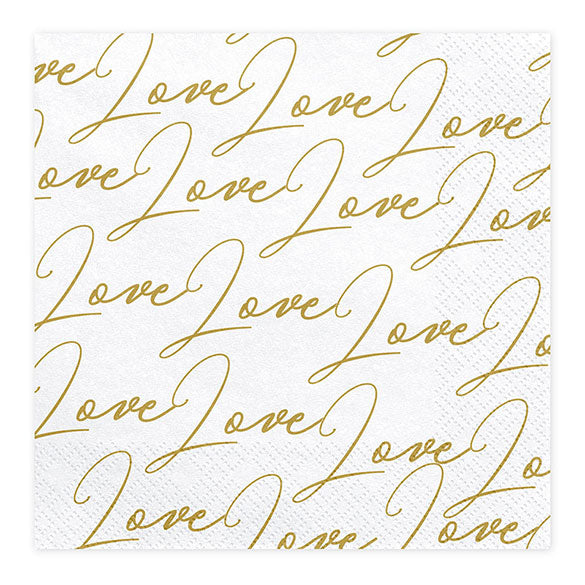 ve Love Love Love
ove Love Love Lov
Love Love Love Lo
Love Love Love Lo
Love Love Love